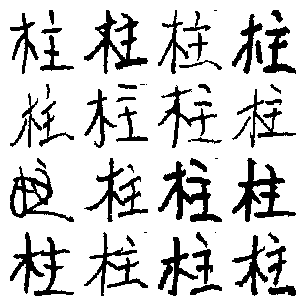 柱柱柱柱
柱柱柱柱
柱柱柱
柱柱柱柱